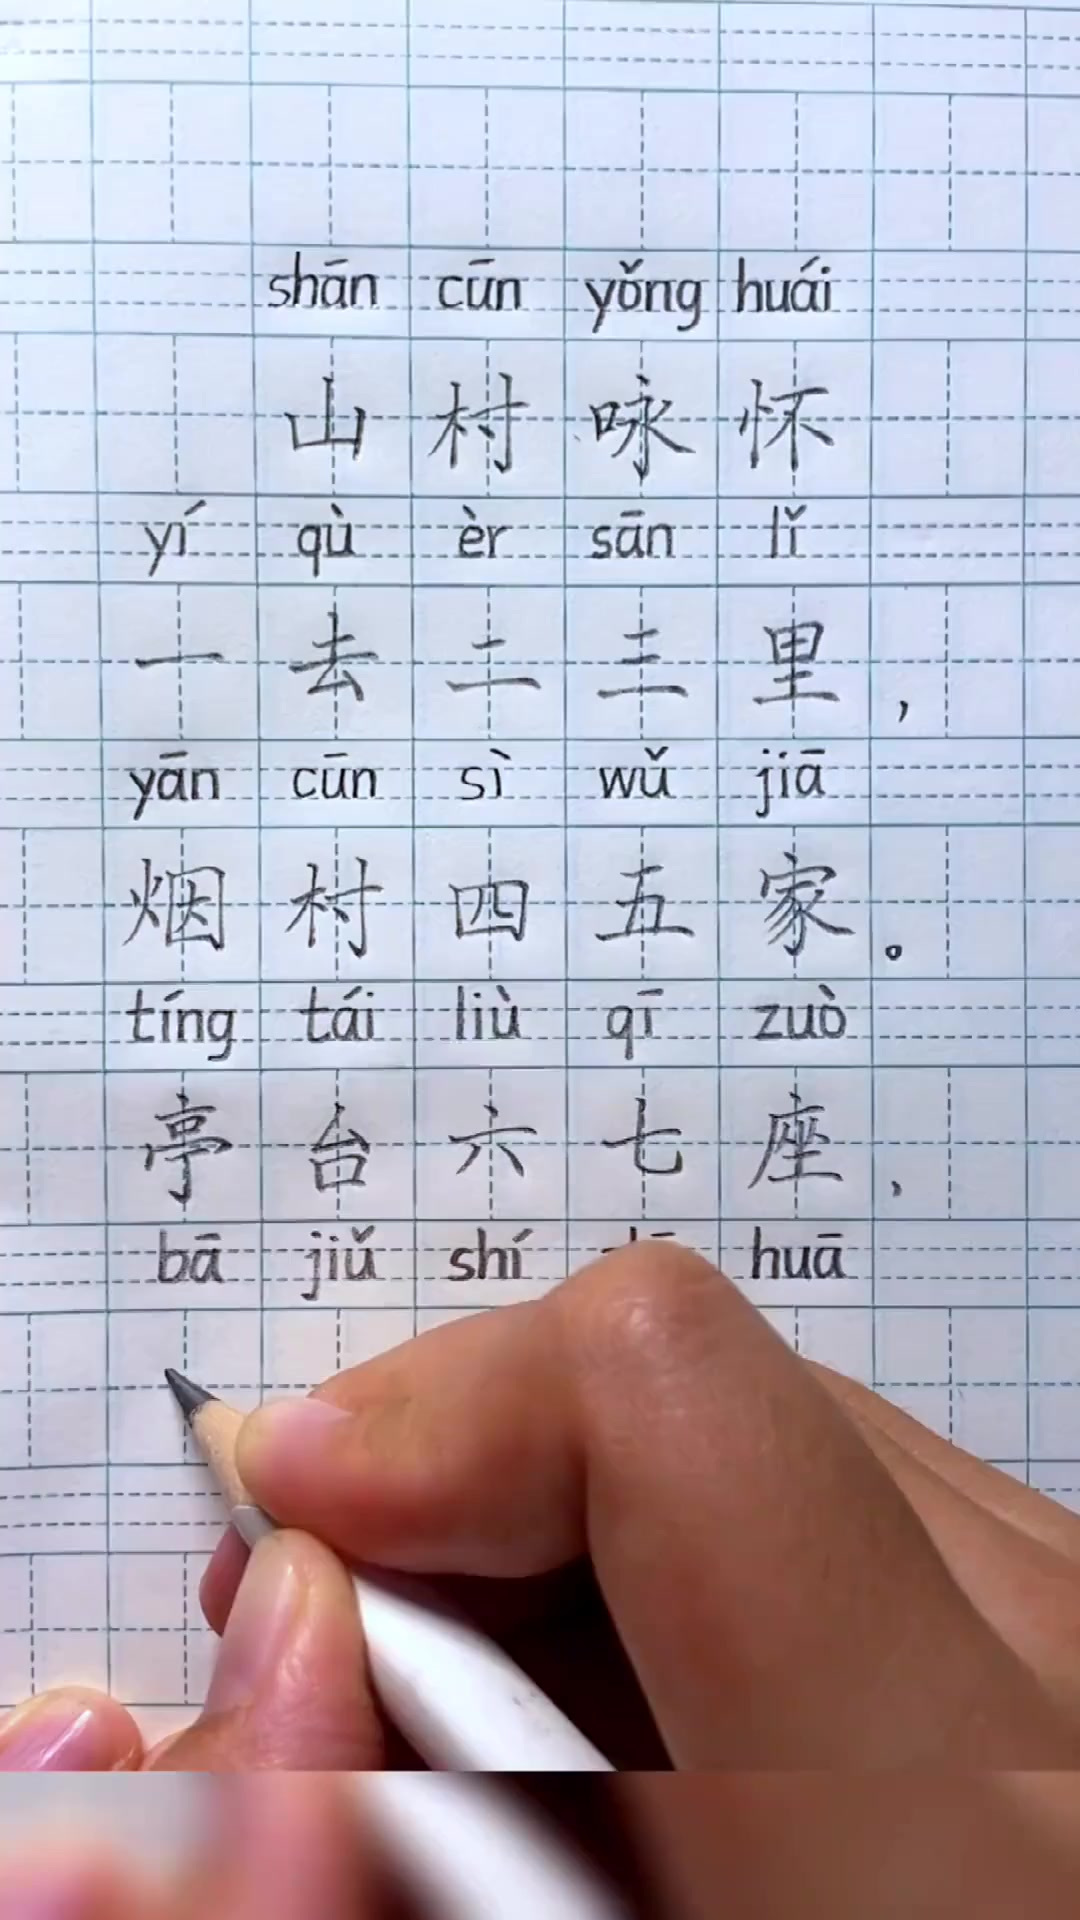 shān cūn yǒng huái
山村咏怀
yí qù èr sān lǐ
一去二三里，
yān cūn sì wǔ jiā
烟村四五家。
tíng tái liù qī zuò
亭台六七座，
bā jiǔ shí huā